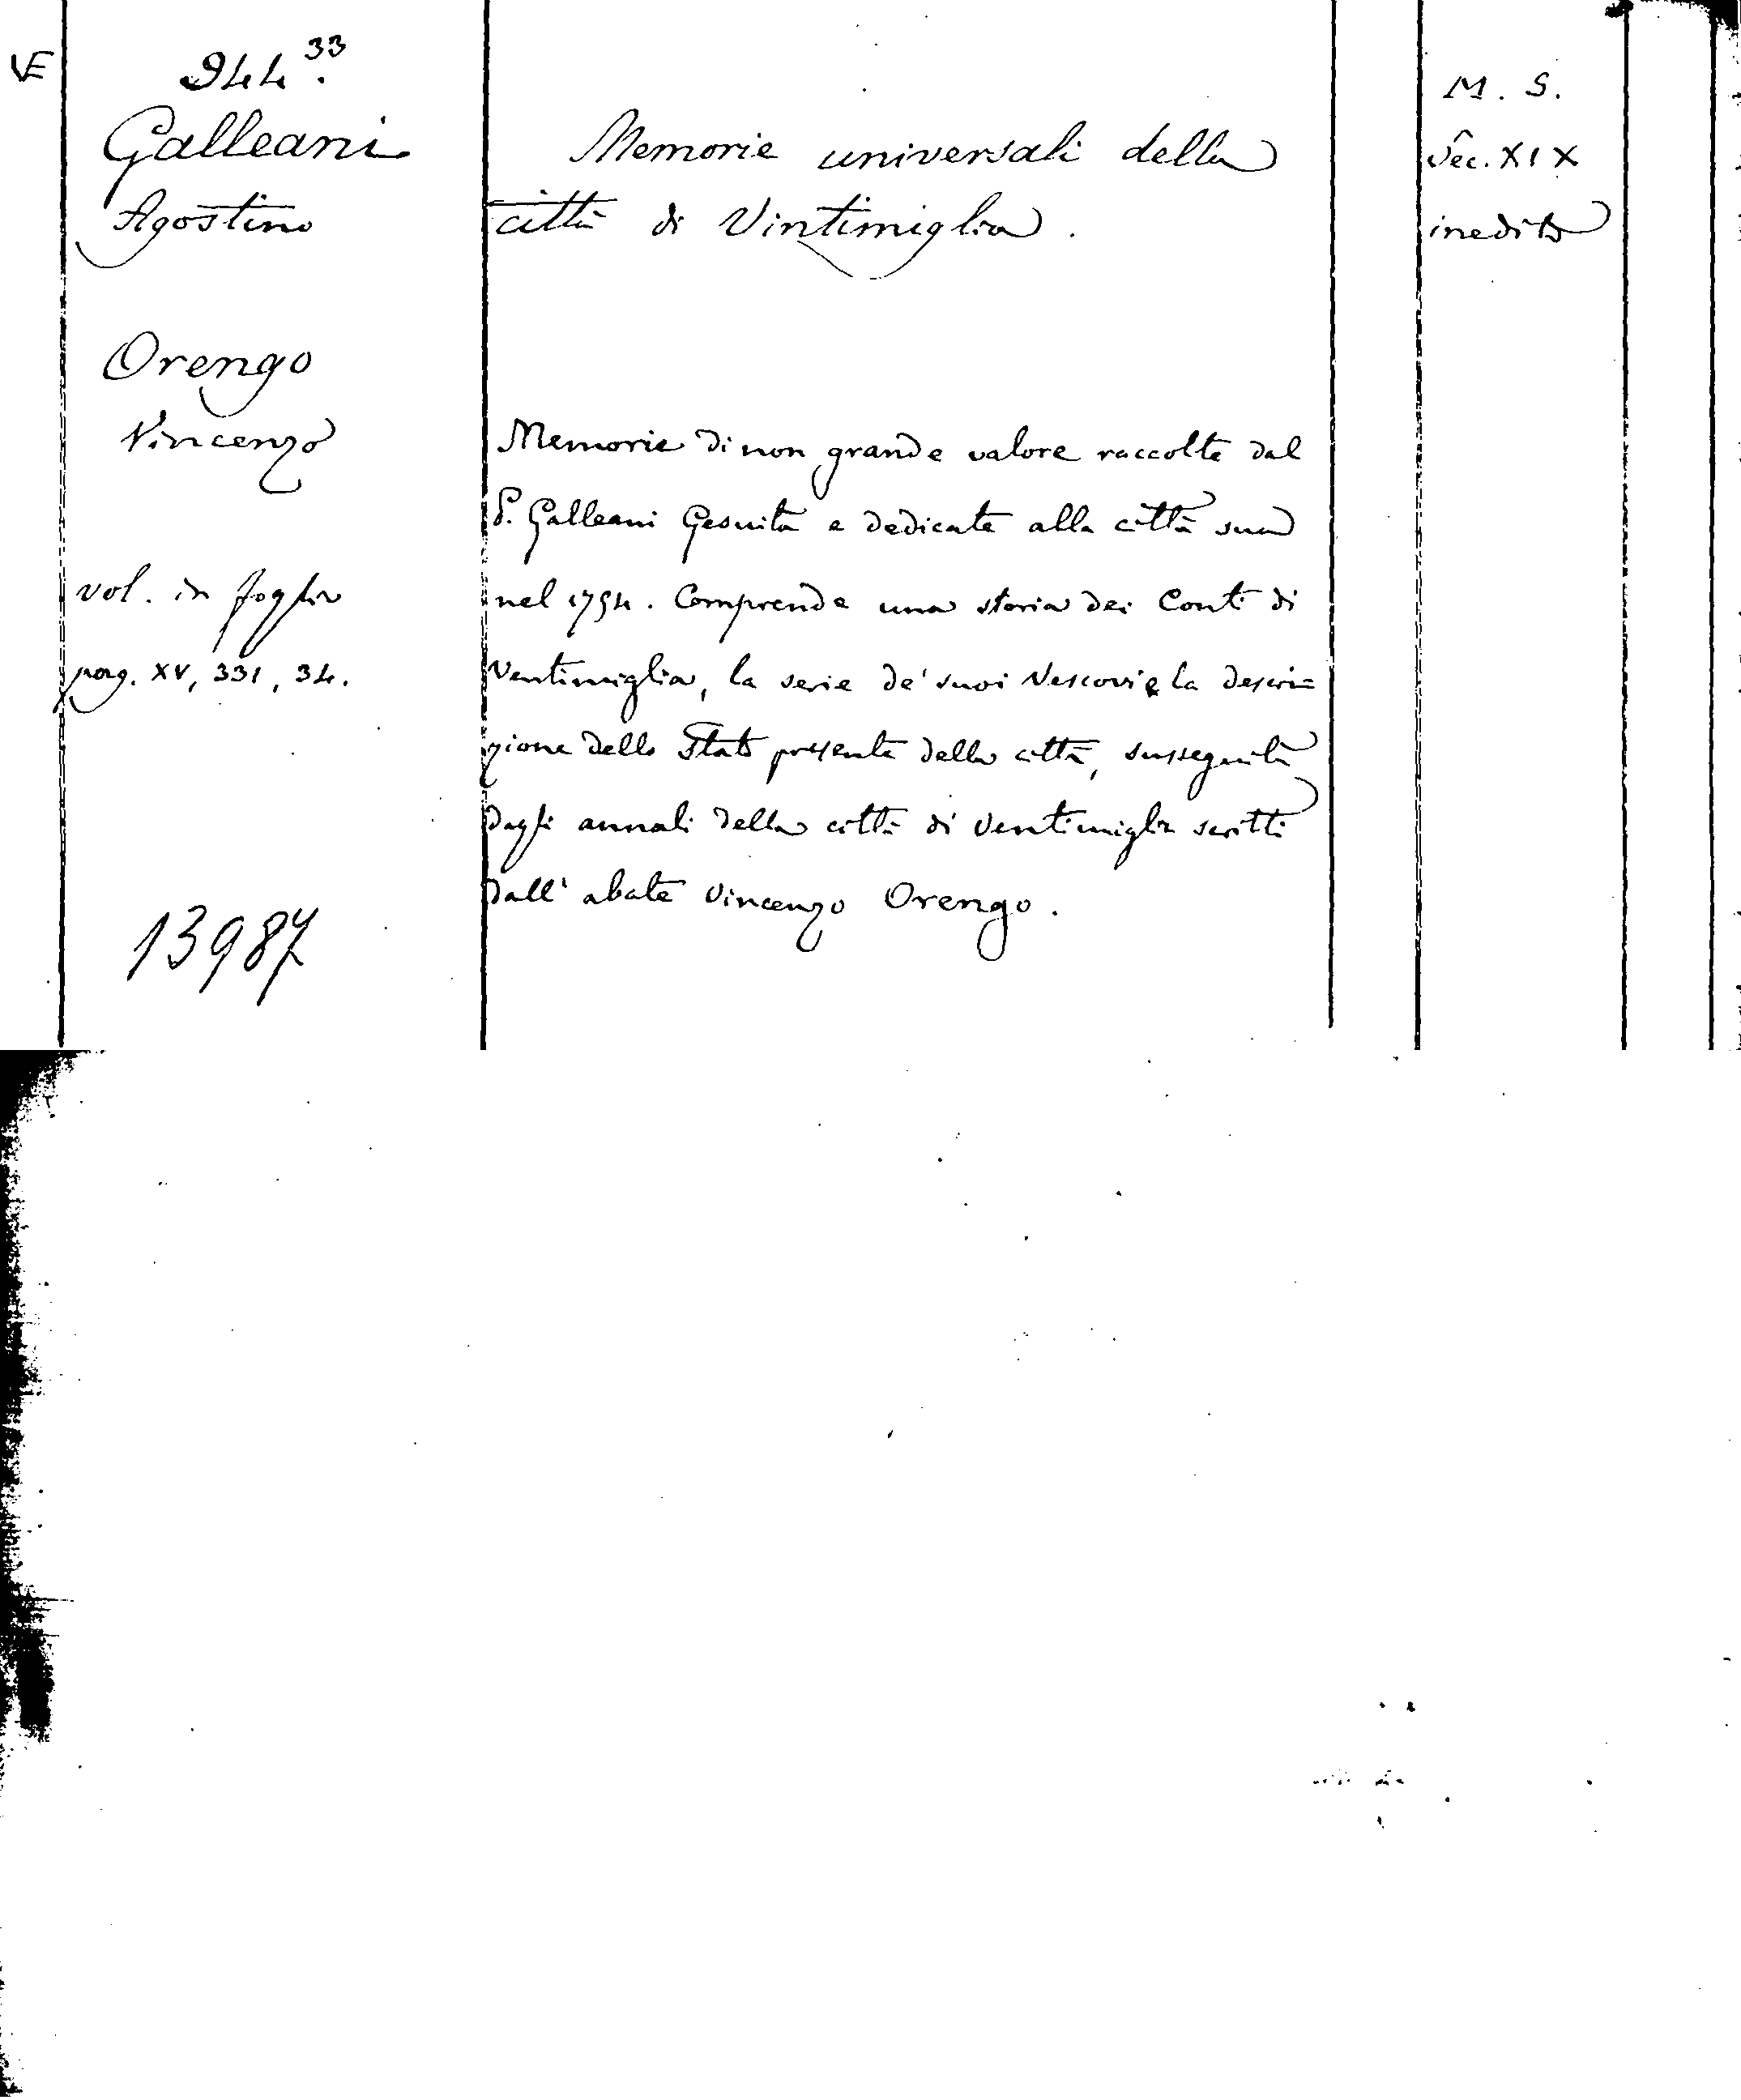 VE
944.33
Galleani
Agostino
Orengo
Vincenzo
vol. in foglio
pag. XV, 331, 34.
13987
Memorie universali della
città di Vintimiglia.
Memorie di non grande valore raccolte dal
P. Galleani Gesuita e dedicate alla città sua
nel 1794. Comprende una storia dei Conti di
Ventimiglia, la serie de' suoi Vescovi e la descri=
zione dello Stato presente della città, susseguita
dagli annali della città di Ventimiglia scritti
dall' abate Vincenzo Orengo.
M. S.
Sec. XIX
inedito